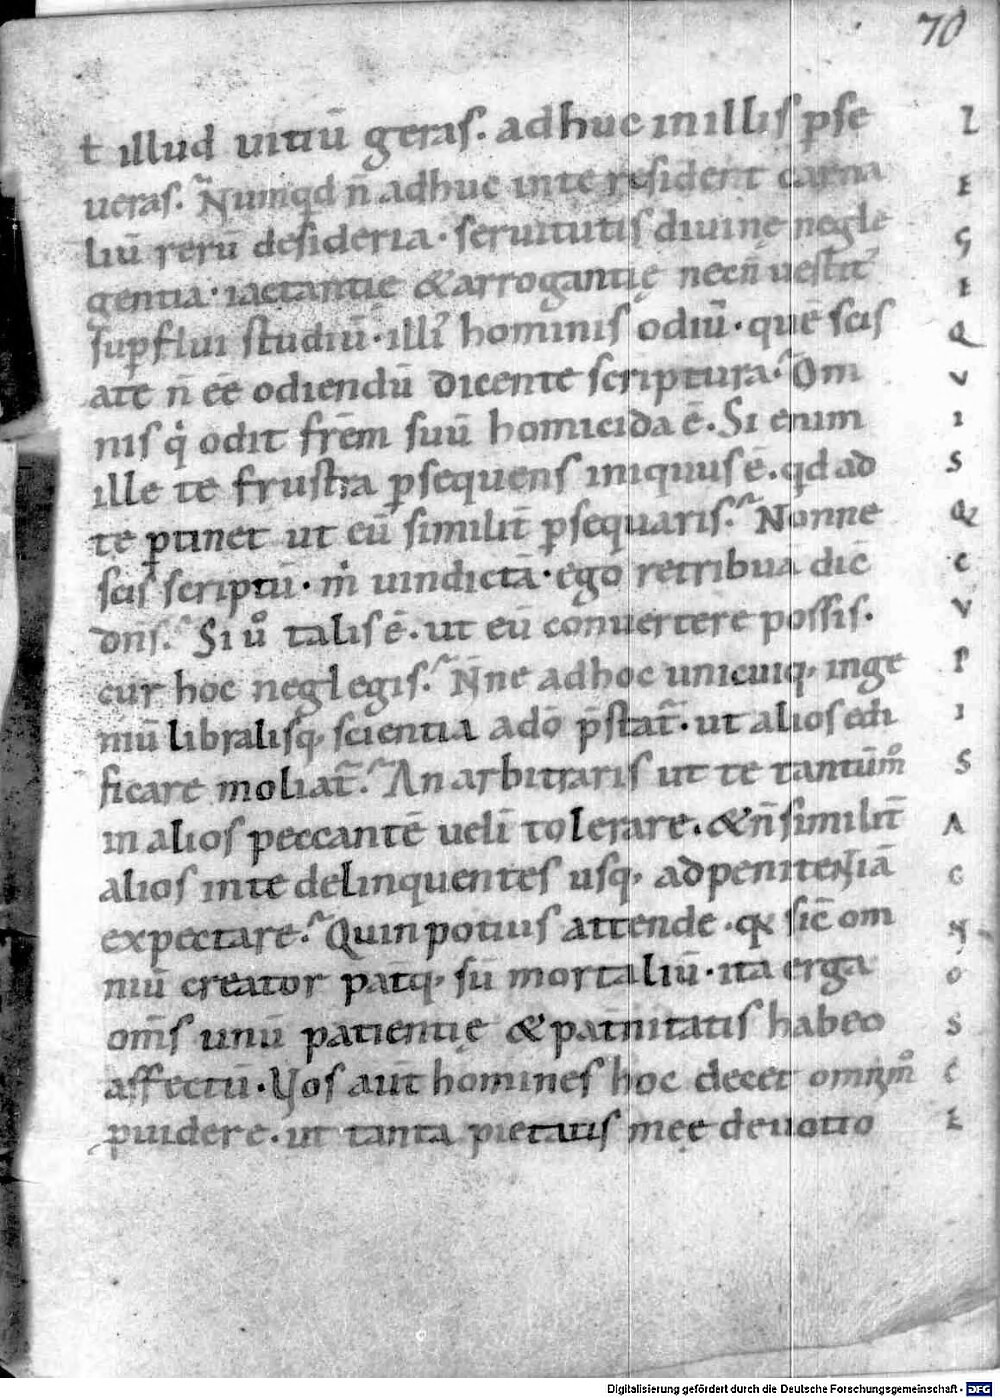 70
t illud uitiū geras. adhuc in illis ꝑse
ueras. Nūiqd n̄ adhuc in te resident carna
liū rerū desideria. seruitutis diuinę negle
gentia. iactantię & arrogantię necn̄ uestit᷒
suꝑflui studiū. illi᷒ hominis odiū. quē scis
a te n̄ eē odiendū dicente scriptura. Om
nis qͥ odit frēm suū homicida ē. Si enim
ille te frustra ꝑsequens iniquus ē. qd ad
te ꝑtinet ut eū similit̄ ꝑsequaris. Nonne
scis scriptū. mͥ uindictā. ego retribuā dic̄
dn̄s. Si uͦ talis ē. ut eū conuertere possis.
cur hoc neglegis. Nn̄e ad hoc unicuiq; inge
niū libralisq; scientia a dō p̄stat̄. ut alios edi
ficare moliat̄. An arbitraris ut te tantūmͦ
in alios peccantē uelī tolerare. & n̄ similit̄
alios in te delinquentes usq; ad penitentiā
expectare. Quin potius attende. qꝫ sic̄ om
niū creator pat̄q; sū mortaliū. ita erga
om̄s unū patientię & pat̄nitatis habeo
affectū. Vos aut̄ homines hoc decet omnimͦ
ꝓuidere. ut tanta pietatis meę deuotio
L
E
G
E
Q
V
I
S
Q
C
V
P
I
S
A
G
N
O
S
C
E
Digitalisierung gefördert durch die Deutsche Forschungsgemeinschaft - DFG